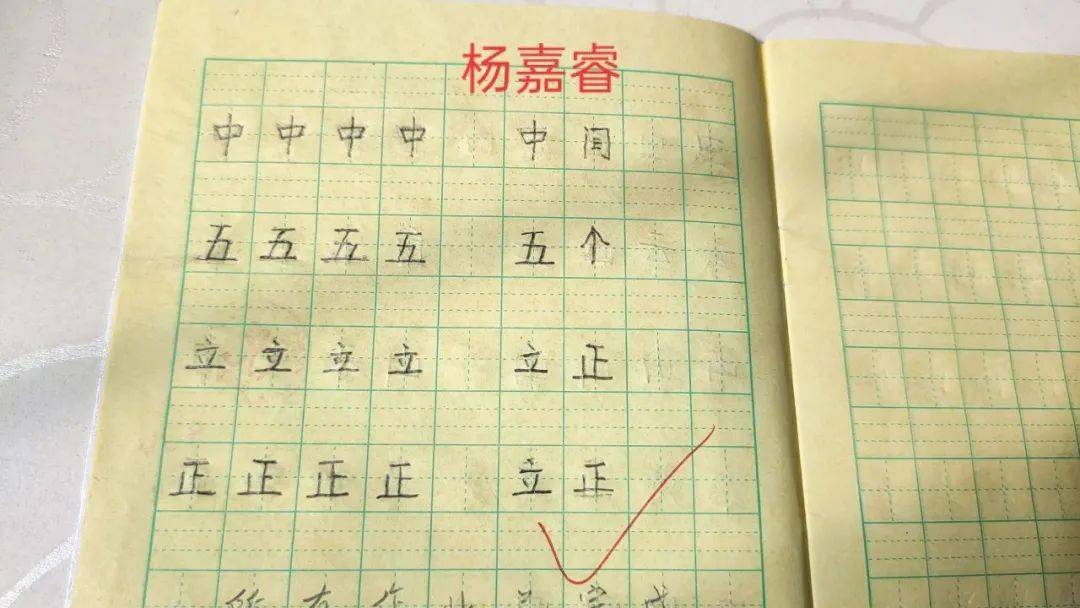 杨嘉睿
中中中中 中间
五五五五 五个
立立立立 立正
正正正正 立正
所有作业 完成